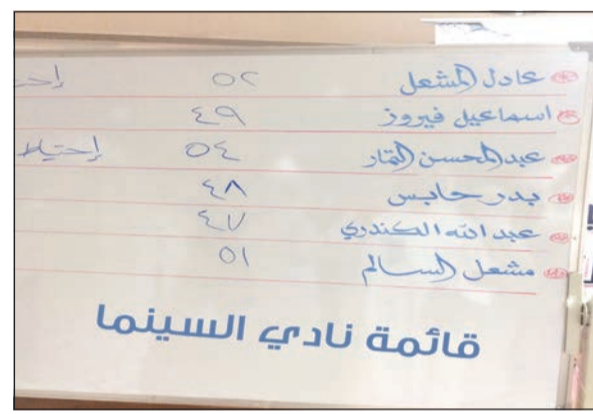 عادل المشعل ٥٢
اسماعيل فيروز ٤٩
عبدالمحسن التمار ٥٤
بدر حابس ٤٨
عبدالله الكندري ٤٧
مشعل السالم ٥١
قائمة نادي السينما